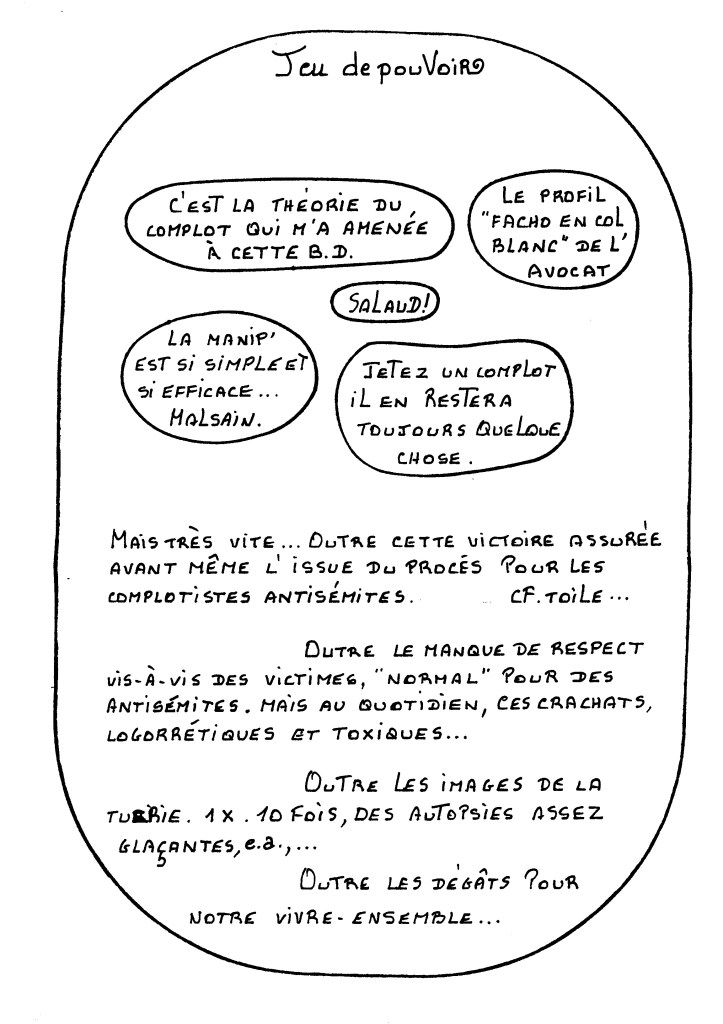 Jeu de pouVoiR
C'EST LA THÉORIE DU
COMPLOT QUI M'A AMENÉE
À CETTE B.D.
LE PROFIL
"FACHO EN COL
BLANC" DE L'
AVOCAT
SALAUD!
LA MANIP'
EST SI SIMPLE ET
SI EFFICACE...
MALSAIN.
JETEZ UN COMPLOT
IL EN RESTERA
TOUJOURS QUELQUE
CHOSE.
MAIS TRÈS VITE... OUTRE CETTE VICTOIRE ASSURÉE
AVANT MÊME L'ISSUE DU PROCÉS POUR LES
COMPLOTISTES ANTISÉMITES. CF. TOILE...
OUTRE LE MANQUE DE RESPECT
VIS-À-VIS DES VICTIMES, "NORMAL" POUR DES
ANTISÉMITES. MAIS AU QUOTIDIEN, CES CRACHATS,
LOGORRÉTIQUES ET TOXIQUES...
OUTRE LES IMAGES DE LA
TUERIE. 1 X. 10 FOIS, DES AUTOPSIES ASSEZ
GLAÇANTES, e.a.,...
OUTRE LES DÉGÂTS POUR
NOTRE VIVRE-ENSEMBLE...